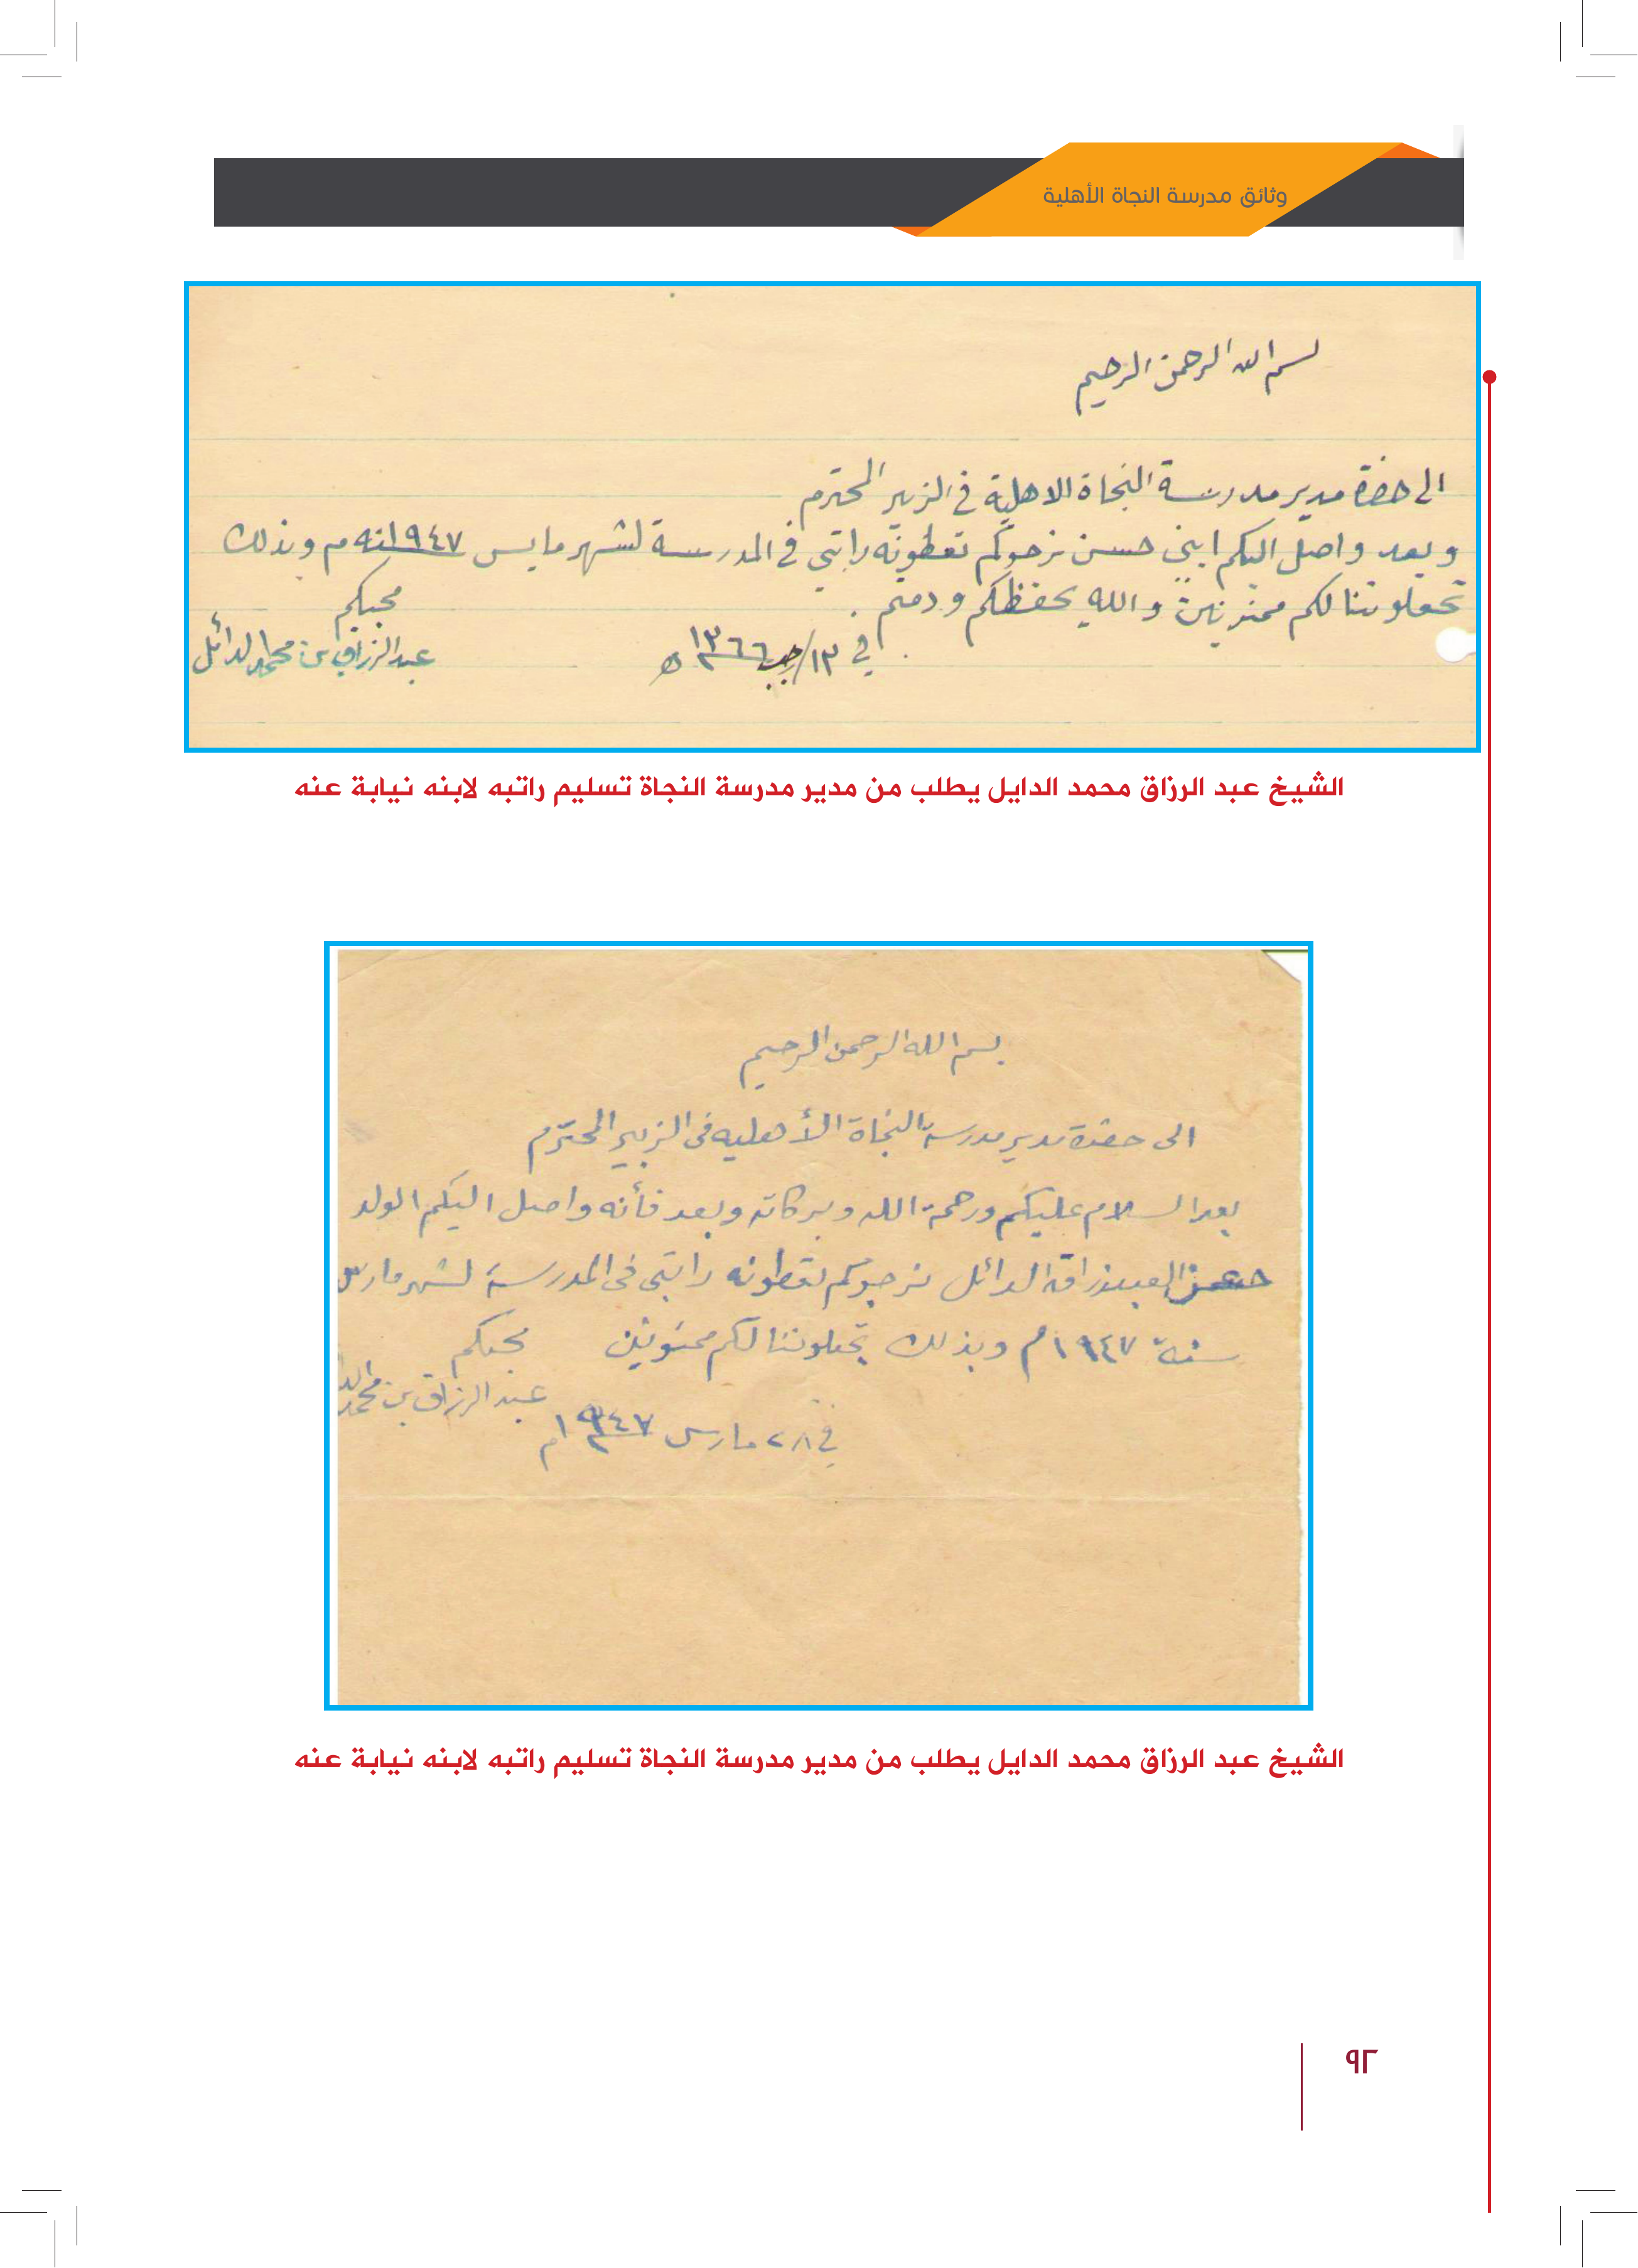 وثائق مدرسة النجاة الأهلية
بسم الله الرحمن الرحيم
الى حضرة مدير مدرسة النجاة الاهلية في الزبير المحترم
وبعد واصل اليكم ابني حسن نرجوكم تعطونه راتبي في المدرسة لشهر مايس ١٩٤٧ م وبذلك
تجعلوننا لكم ممنونين والله يحفظكم ودمتم .
محبكم
في ١٣/رجب ١٣٦٦ ه
عبد الرزاق بن محمد الدائل
الشيخ عبد الرزاق محمد الدايل يطلب من مدير مدرسة النجاة تسليم راتبه لابنه نيابة عنه
بسم الله الرحمن الرحيم
الى حضرة مدير مدرسة النجاة الأهليه فى الزبير المحترم
بعد السلام عليكم ورحمة الله وبركاته وبعد فأنه واصل اليكم الولد
الدائل نرجوكم تعطونه راتبي فى المدرسة لشهر مارس
سنة ١٩٤٧م وبذلك تجعلوننا لكم ممنونين
محبكم
عبد الرزاق بن محمد
في ٢٨ مارس ١٩٤٧م
الشيخ عبد الرزاق محمد الدايل يطلب من مدير مدرسة النجاة تسليم راتبه لابنه نيابة عنه
٩٢